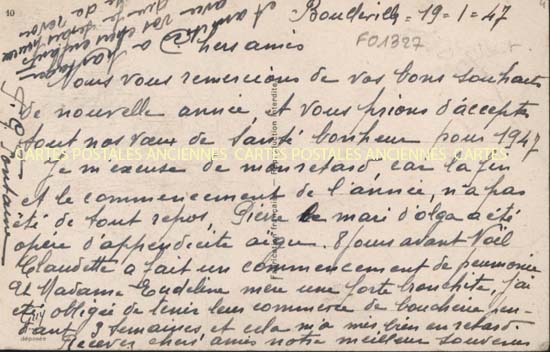 10
Boulleville = 19-1-47
FO1327
Chers amis
Nous vous remercions de vos bons souhaits
de nouvelle année, et vous prions d'accepter
tout nos vœux de santé bonheur pour 1947
CARTES POSTALES ANCIENNES CARTES POSTALES ANCIENNES CARTES
Je m'excuse de mon retard, car la fin
et le commencement de l'année, n'a pas
été de tout repos, le mari d'olga a été
opéré d'appendicite aigue. 8 jours avant Noël
Claudette a fait un commencement de pneumonie
et Madame mère une forte bronchite, j'ai
été obligée de tenir leur commerce de boucherie pen-
dant 3 semaines et cela m'a mis bien en retard
Recevez chers amis notre meilleur souvenir
à partager
avec vos chers enfants
déposée